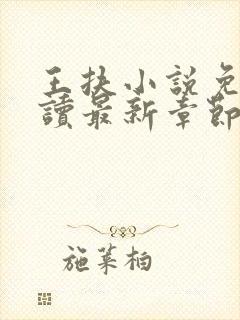 王扶小說免
讀最新章節
施萊柏